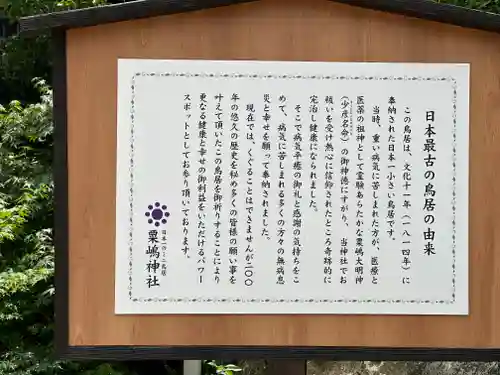 日本最古の鳥居の由来
この鳥居は、文化十一年（一八一四年）に
奉納された日本一小さい鳥居です。
当時、重い病気に苦しまれた方が、医療と
医薬の祖神として霊験あらたかな粟嶋大明神
（少彦名命）の御神徳にすがり、当神社でお
祓いを受け熱心に信仰されたところ奇跡的に
完治し健康になられました。
そこで病気平癒の御礼と感謝の気持ちをこ
めて、病気に苦しまれる多くの方々の無病息
災と幸せを願って奉納されました。
現在では、くぐることはできませんが二〇〇
年の悠久の歴史を秘め多くの皆様の願い事を
叶えて頂いたこの鳥居を御祈りすることにより
更なる健康と幸せの御利益をいただけるパワー
スポットとしてお参り頂いております。
日本一のミニ鳥居
粟嶋神社